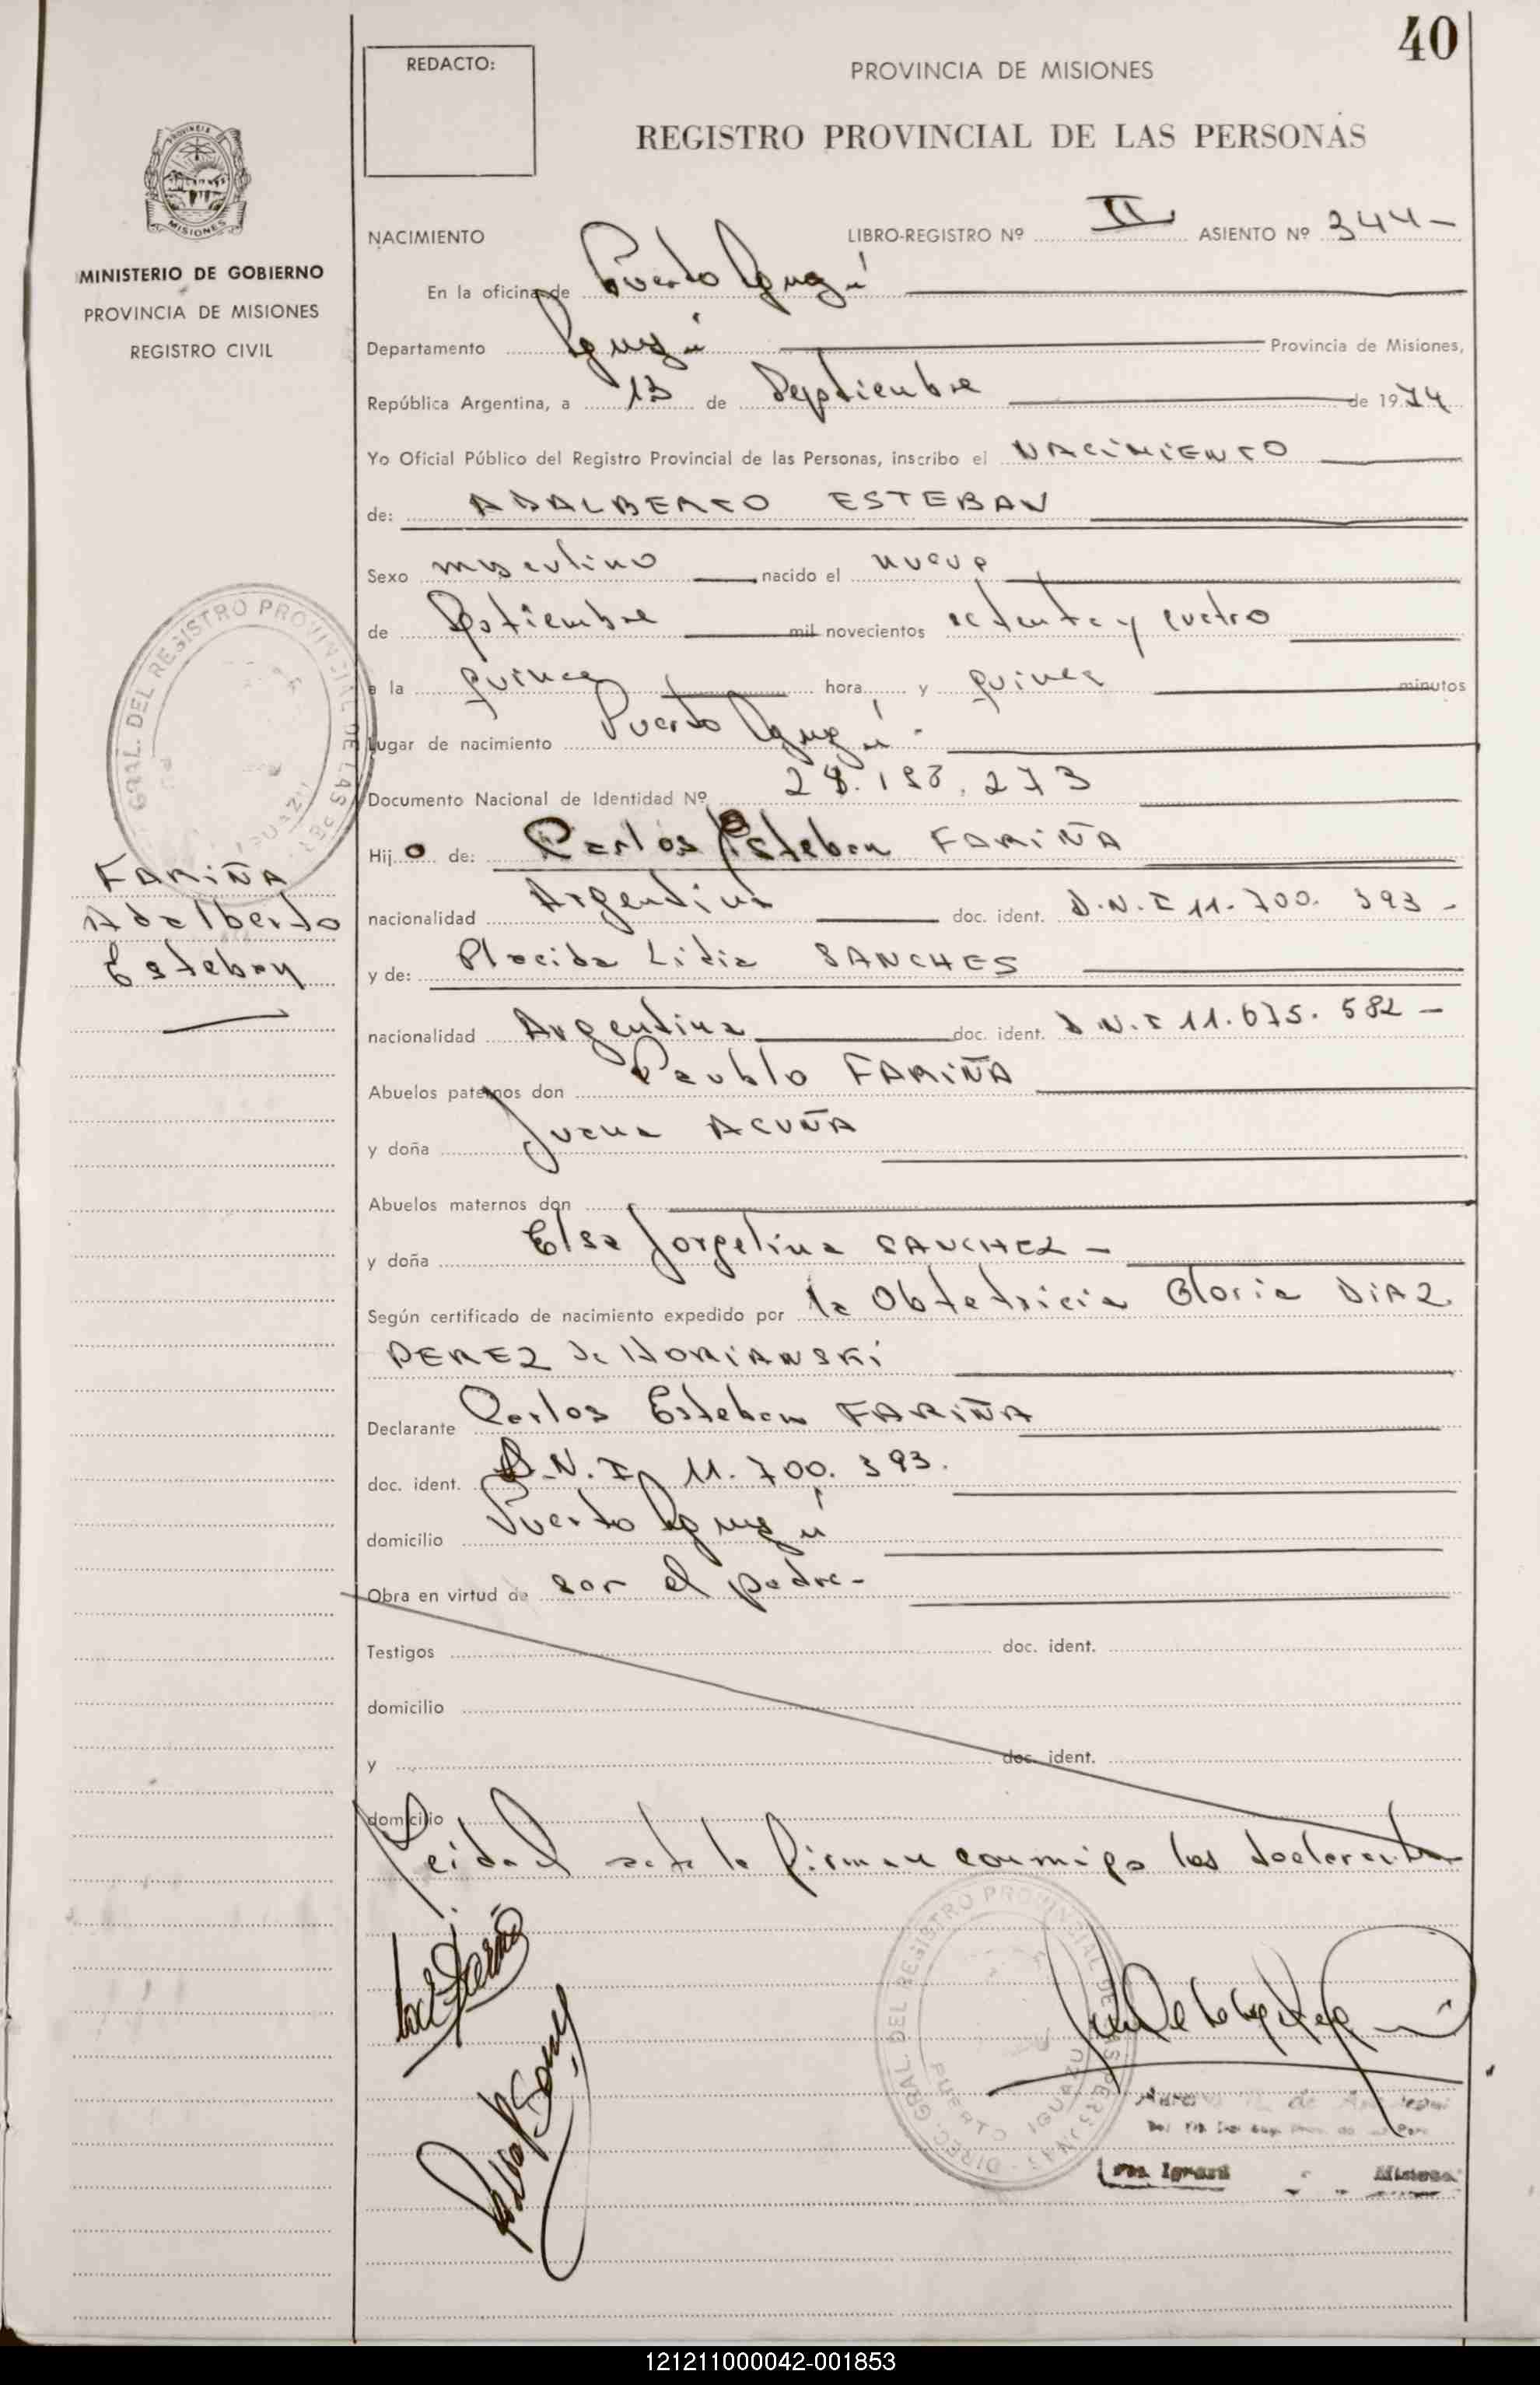 40
REDACTO:
PROVINCIA DE MISIONES
REGISTRO PROVINCIAL DE LAS PERSONAS
MISIONES
MINISTERIO DE GOBIERNO
PROVINCIA DE MISIONES
REGISTRO CIVIL
NACIMIENTO LIBRO-REGISTRO Nº II ASIENTO Nº 344-
En la oficina de Puerto Iguazú
Departamento Iguazú Provincia de Misiones,
República Argentina, a 13 de Septiembre de 1974
Yo Oficial Público del Registro Provincial de las Personas, inscribo el NACIMIENTO
de: ADALBERTO ESTEBAN
Sexo masculino nacido el nueve
de Septiembre mil novecientos setenta y cuatro
a la quince hora y quince minutos
Lugar de nacimiento Puerto Iguazú-
Documento Nacional de Identidad Nº 273
Hijo de: Carlos Esteban FARIÑA
FARIÑA
Adalberto
Esteban
nacionalidad Argentina doc. ident. D.N.I 11.700.393-
y de: Placida Lidia SANCHES
nacionalidad Argentina doc. ident. D.N.I 11.675.582-
Abuelos paternos don FARIÑA
y doña Juana ACUÑA
Abuelos maternos don
y doña Elsa Jorgelina SANCHEZ-
Según certificado de nacimiento expedido por la Obtetricia Gloria DIAZ
PEREZ de
Declarante Carlos Esteban FARIÑA
doc. ident. D.N.I 11.700.393.
domicilio Puerto Iguazú
Obra en virtud de ser el padre-
Testigos doc. ident.
domicilio
y doc. ident.
domicilio
Leida el acta la firman conmigo los
DIREC. GRAL. DEL REGISTRO PROVINCIAL DE LAS PERSONAS
PUERTO IGUAZU
Pto. Iguazú Misiones
121211000042-001853